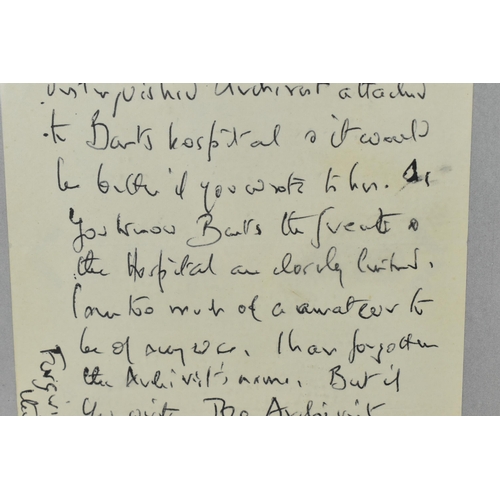 distinguished Archivist attached
to Barts hospital & it would
be better if you wrote to her. As
you know Barts the &
the Hospital are closely linked.
I am too much of an amateur to
be of any use. I have forgotten
the Archivist's name. But if
you write The Archivist